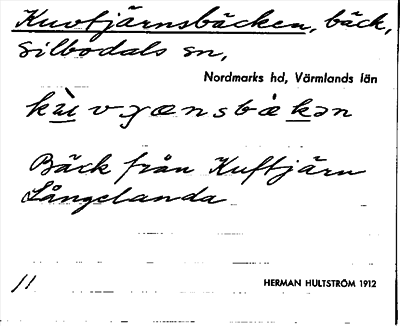 Kuvtjärnsbäcken, bäck,
Silbodals sn,
Nordmarks hd, Värmlands län
Bäck från Kuftjärn
Långelanda
11
HERMAN HULTSTRÖM 1912